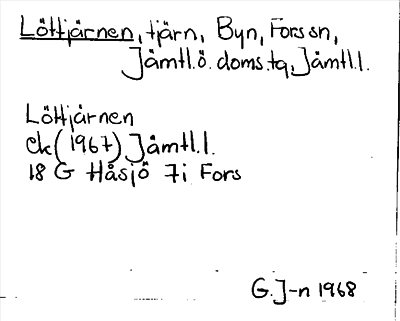 Löttjärnen, tjärn, Byn, Fors sn,
Jämtl.ö. doms.tg, Jämtl.l.
Löttjärnen
ek (1967) Jämtl.l.
18 G Håsjö 7i Fors
G.J-n 1968